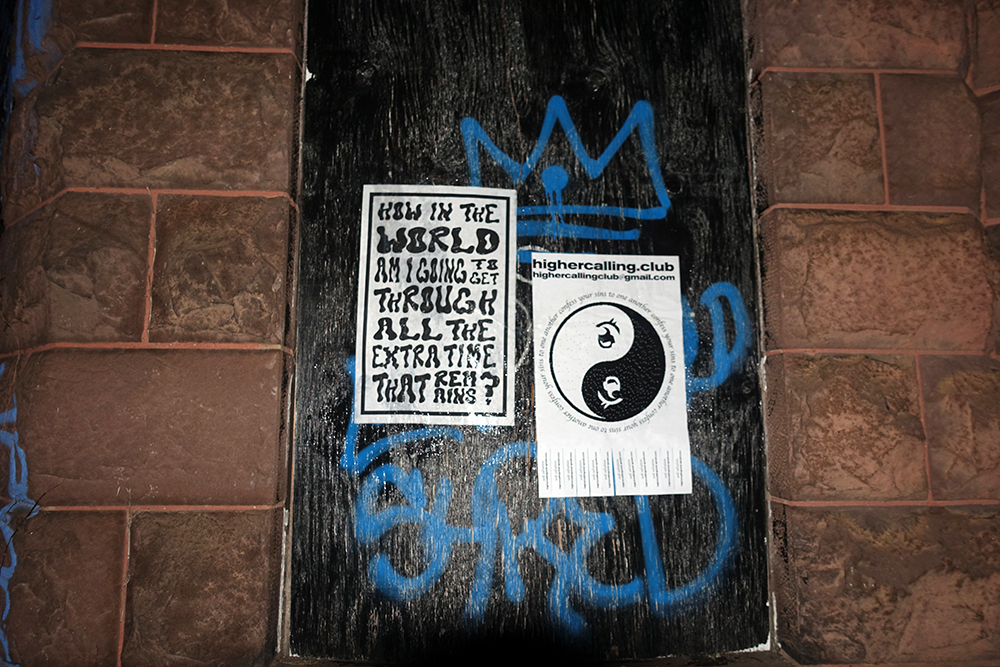 HOW IN THE
WORLD
AM I GOING TO GET
THROUGH
ALL THE
EXTRA TIME
THAT REMAINS?
highercalling.club
highercallingclub@gmail.com
confess your sins to one another confess your sins to one another confess your sins to one another confess your sins to one another